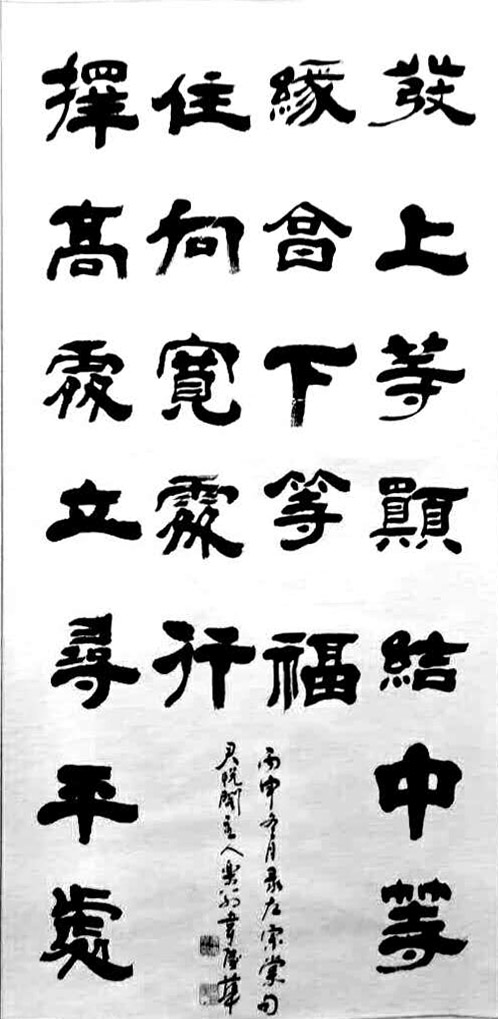 發上等願結中等
緣亯下等福
擇高處立尋平處
住向寬處行
丙申冬月录左宗棠句
悦阁主人